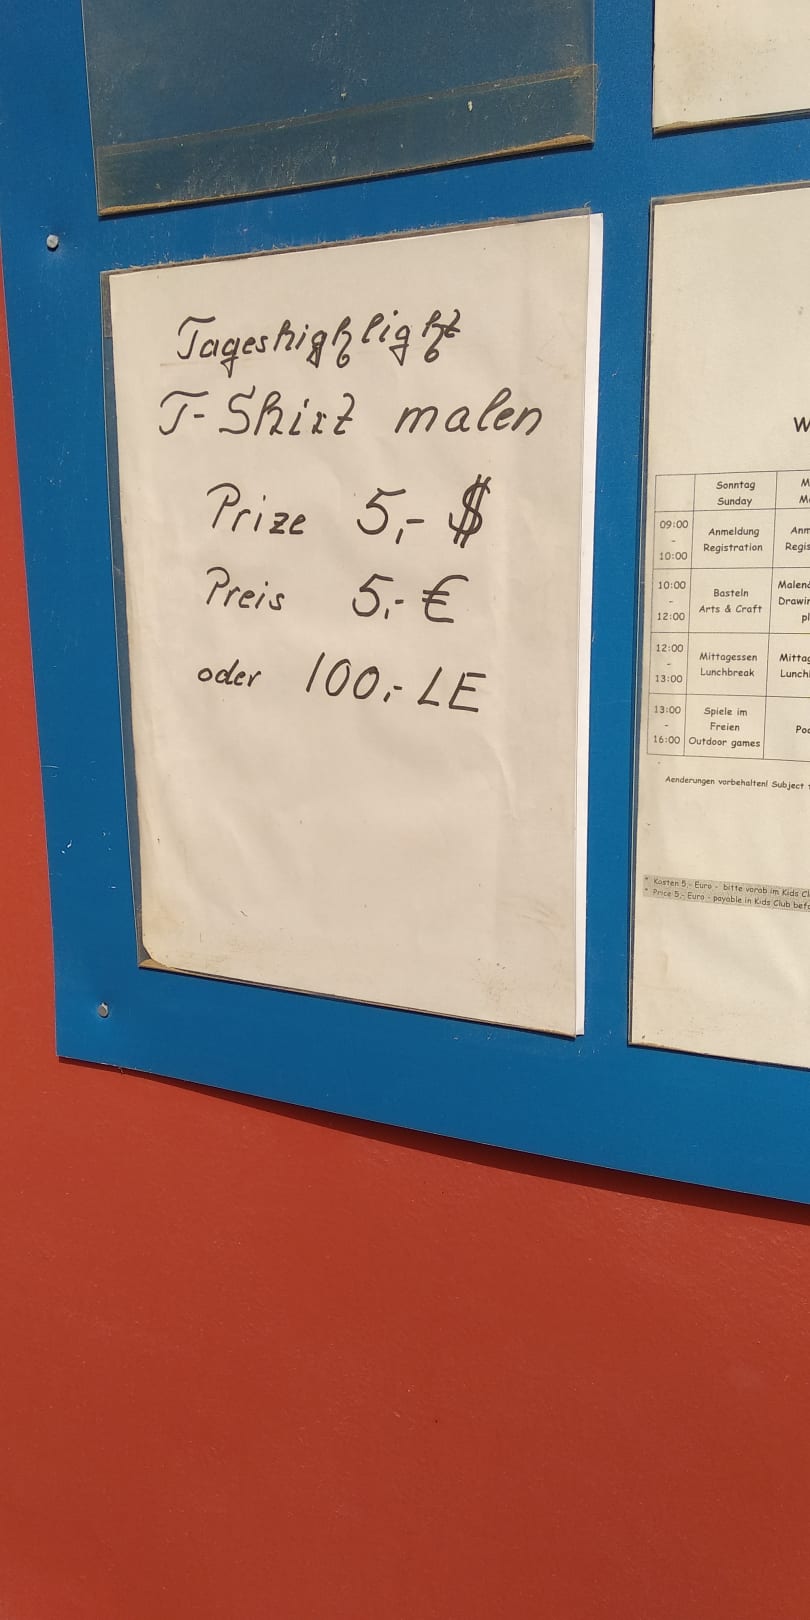 Tageshighlight
T-Shirt malen
Prize 5,- $
Preis 5,- €
oder 100,- LE
Sonntag
Sunday
09:00
-
10:00
Anmeldung
Registration
10:00
-
12:00
Basteln
Arts & Craft
12:00
-
13:00
Mittagessen
Lunchbreak
13:00
-
16:00
Spiele im
Freien
Outdoor games
Aenderungen vorbehalten! Subject
* Kosten 5,- Euro - bitte vorab im Kids
* Price 5,- Euro - payable in Kids Club